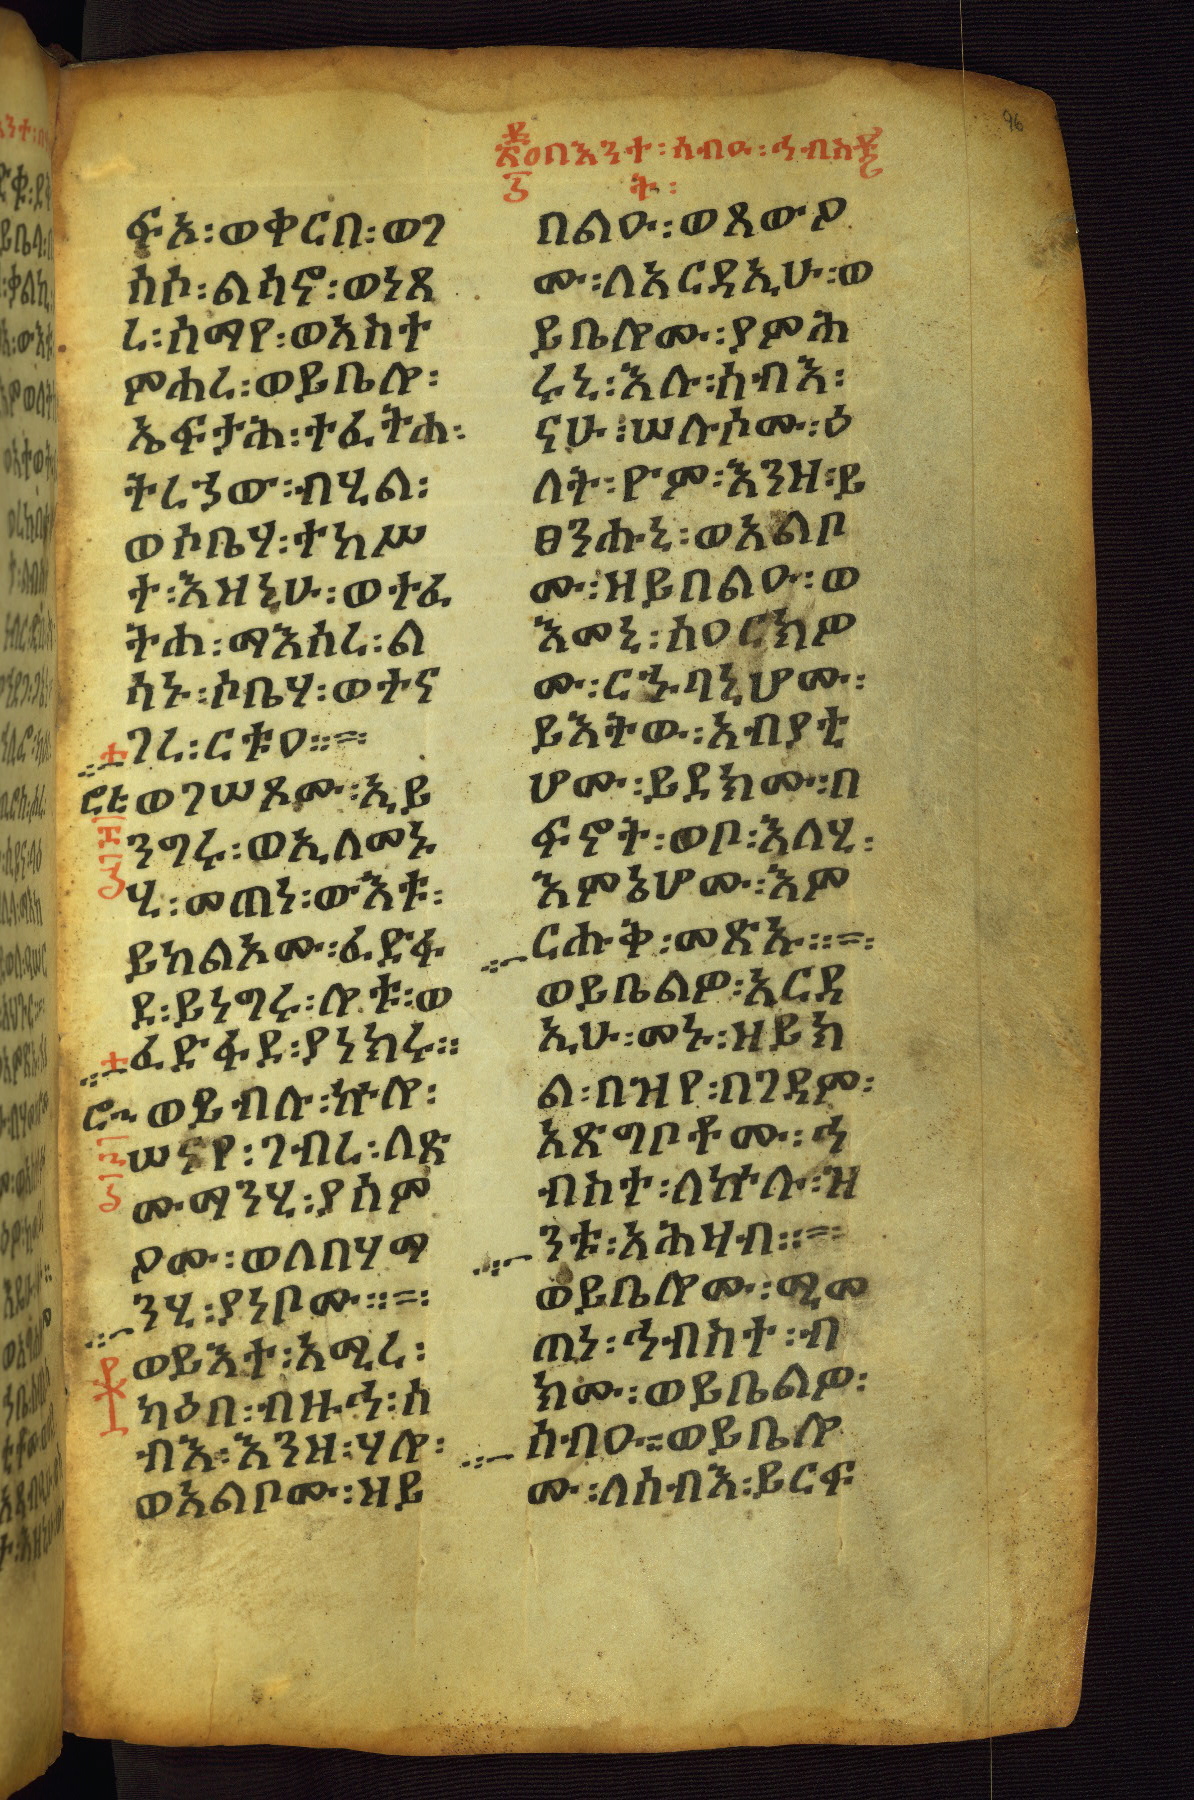 በእንተ፡ሰብዑ፡ኅብስ
ት፡
ፍአ፡ወቀርበ፡ወገ
ሰሶ፡ልሳኖ፡ወነጸ
ረ፡ሰማየ፡ወአስተ
ምሐረ፡ወይቤሎ፡
ኤፍታሕ፡ተፈትሐ፡
ትረኀው፡ብሂል፡
ወሶቤሃ፡ተከሥ
ተ፡እዝኒሁ፡ወተፈ
ትሐ፡ማእሰረ፡ል
ሳኑ፡ሶቤሃ፡ወተና
ገረ፡ርቱዐ።=፡
ወገሠጾሙ፡ኢይ
ንግሩ፡ወኢለመኑ
ሂ፡መጠነ፡ውእቱ፡
ይከልኦሙ፡ፈድፋ
ደ፡ይነግሩ፡ሎቱ፡ወ
ፈድፋደ፡ያነክሩ።
ወይብሉ፡ኵሎ፡
ሠናየ፡ገብረ፡ለጽ
ሙማንሂ፡ያሰም
ዖሙ፡ወለበሃማ
ንሂ፡ያነቦሙ።=፡
ወይእተ፡አሚረ፡
ካዕበ፡ብዙኅ፡ሰ
ብእ፡እንዘ፡ሃሎ፡
ወአልቦሙ፡ዝይ
በልዑ፡ወጸውዖ
ሙ፡ለአርዳኢሁ፡ወ
ይቤሎሙ፡ያምሕ
ሩኒ፡እሉ፡ሰብእ፡
ናሁ፡ሠሉሶሙ፡ዕ
ለት፡ዮም፡እንዘ፡ይ
ፀንሑኒ፡ወአልቦ
ሙ፡ዝይበልዑ፡ወ
እመኒ፡ሰዐርክዎ
ሙ፡ርኁባኒሆሙ፡
ይእትው፡አብያቲ
ሆሙ፡ይደክሙ፡በ
ፍኖት፡ወቦ፡እለሂ፡
እምኔሆሙ፡እም
ርሑቅ፡መጽኡ።=፡
ወይቤልዎ፡አርዳ
ኢሁ፡መኑ፡ዘይክ
ል፡በዝየ፡በገዳም፡
አጽግቦቶሙ፡ኅ
ብስተ፡ለኵሉ፡ዝ
ንቱ፡አሕዛብ።=፡
ወይቤሎሙ፡ሚመ
ጠነ፡ኅብስተ፡ብ
ክሙ፡ወይቤልዎ፡
ሰብዑ።ወይቤሎ
ሙ፡ለሰብእ፡ይርፍ